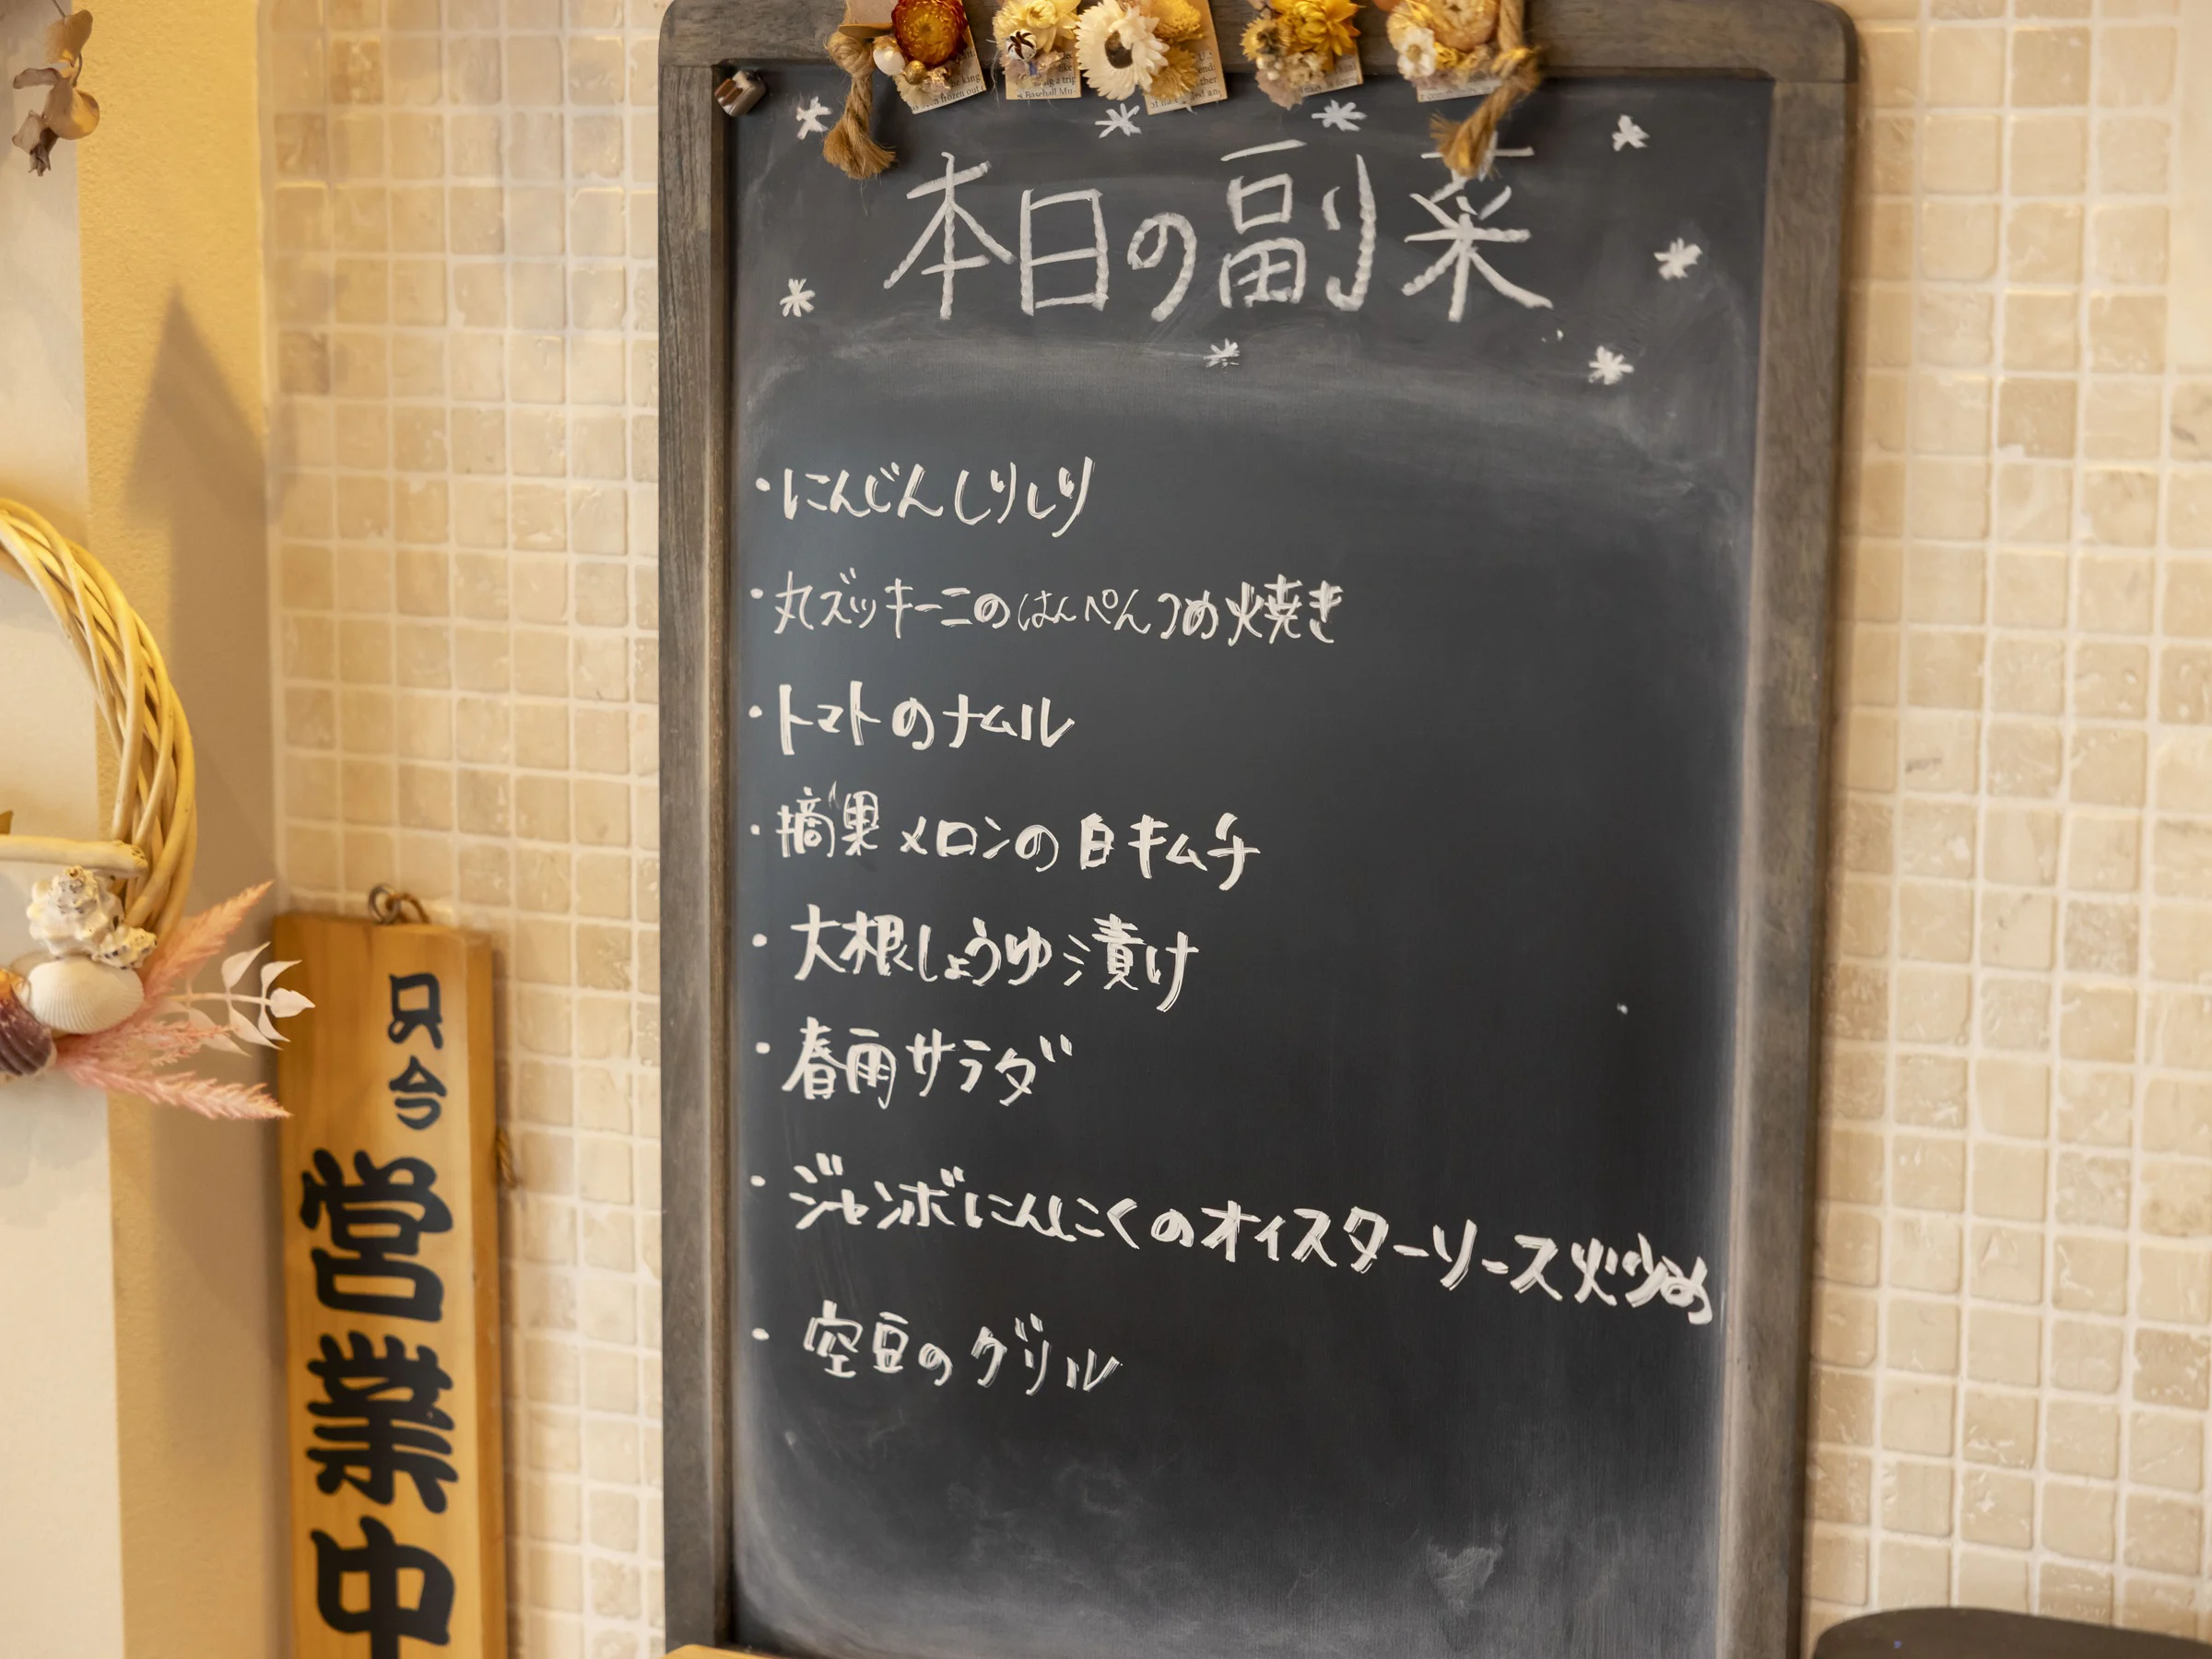 本日の副菜
・にんじんしりしり
・丸ズッキーニのはんぺんつめ焼き
・トマトのナムル
・摘果メロンの白キムチ
・大根しょうゆ漬け
・春雨サラダ
・ジャンボにんにくのオイスターソース炒め
・空豆のグリル
只今
営業中